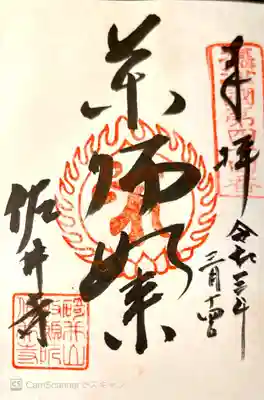 奉拝
令和三年
三月十四日
薬師如来
佐井寺
CS CamScanner でスキャン